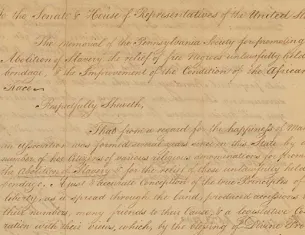 To the Senate & House of Representatives of the United
The memorial of the Pennsylvania Society for promoting
Abolition of Slavery the relief of free Negroes unlawfully held
bondage, & the Improvement of the Condition of the African
Race—
Respectfully Sheweth,
That from a regard for the happiness of
an association was formed several years since in this State by a
number of her Citizens of various religious denominations for
the abolition of Slavery & for the relief of those unlawfully held
bondage. A just & Conception of the true Principles of
liberty, as it spread through the land, produced accessions
their numbers, many friends to their Cause, & a legislative
ration with their views, which, by the blessing of Divine